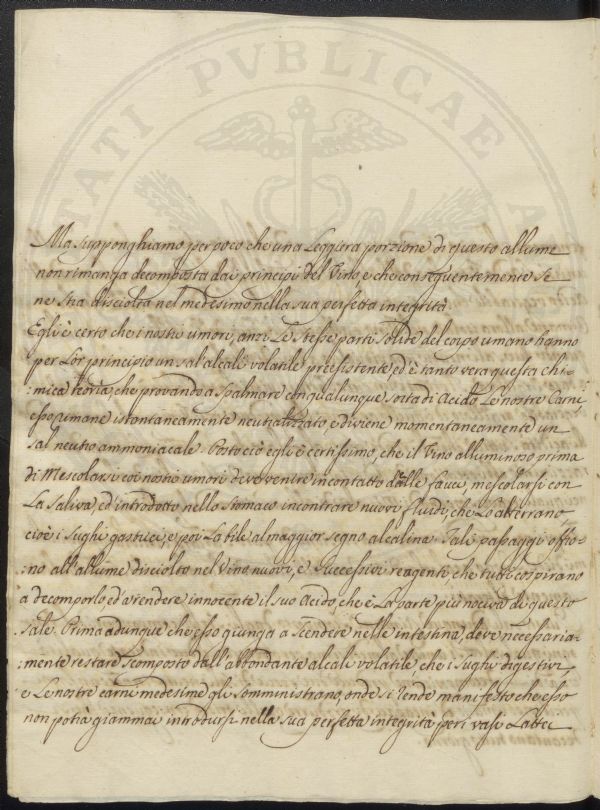 TATI PVBLICAE
Ma supponghiamo per poco che una Leggiera porzione di questo allume
non rimanga decomposta dai principj del Vino e che conseguentemente se
ne stia disciolta nel medesimo nella sua perfetta integrità.
Egli è certo che i nostri umori, anzi Le stesse parti solide del corpo umano hanno
per Lor principio un sal alcali volatile preesistente, ed è tanto vera questa chi-
:mica teoria, che provando a spalmare con qualunque sorta di Acido Le nostre Carni
esso umane istantaneamente neutralizzato, e diviene momentaneamente un
sal neutro ammoniacale. Posto ciò egli è certissimo, che il Vino alluminoso prima
di Mescolarsi coi nostri umori deve venire in contatto dalle fauci, mescolarsi con
La saliva, ed introdotto nello stomaco incontrare nuovi fluidi, che Lo alterano
cioè i sughi gastrici, e poi La bile al maggior segno alcalina. Tali passaggi offro-
:no all'allume disciolto nel Vino nuovi, e successivi reagenti, che tutti cospirano
a decomporlo, ed a rendere innocente il suo Acido, che è La parte più nociva di questo
sale. Prima adunque che esso giunga a scendere nelle intestina, deve necessaria-
:mente restare scomposto dall'abbondante alcali volatile che i sughi digestivi
e Le nostre carni medesime gli somministrano, onde si rende manifesto che esso
non potrà giammai introdursi nella sua perfetta integrità per i vasi Lattei